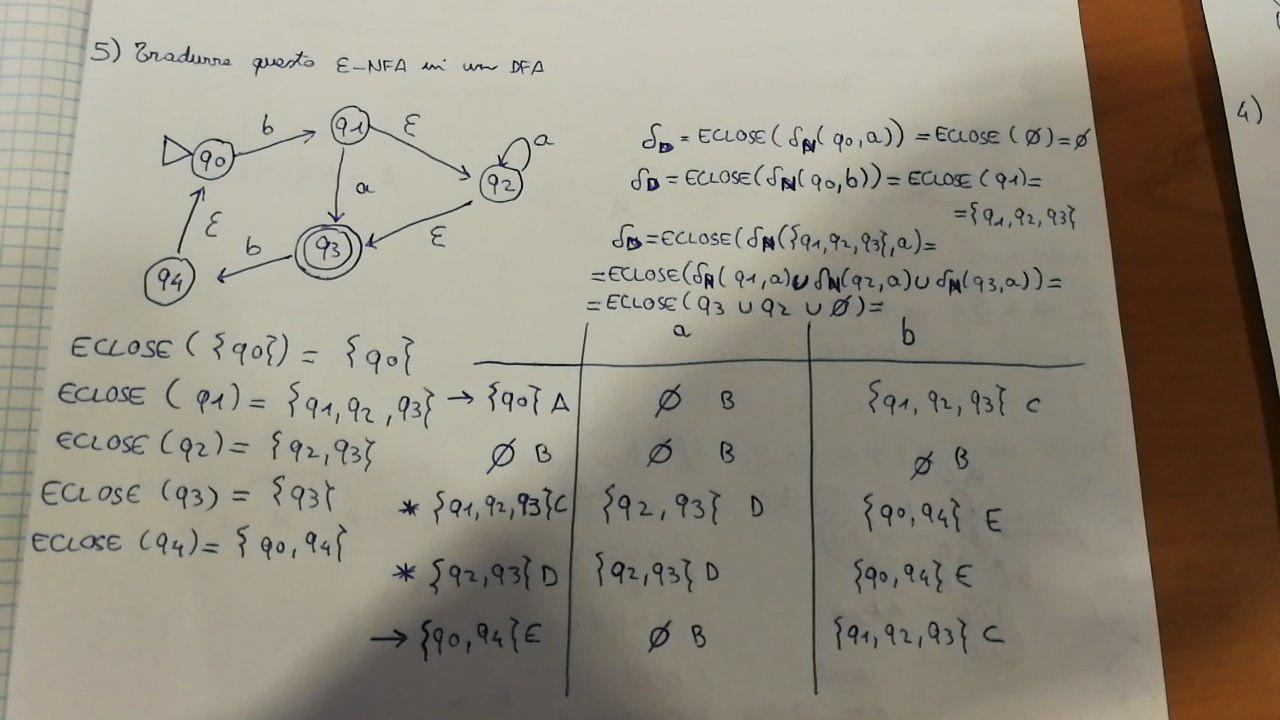 5) Tradurre questo ε-NFA in un DFA
b
q1
ε
q0
a
q2
a
ε
b
q3
ε
q4
δD = ECLOSE(δN(q0,a)) = ECLOSE(∅) = ∅
δD = ECLOSE(δN(q0,b)) = ECLOSE(q1) =
= {q1,q2,q3}
δD = ECLOSE(δN({q1,q2,q3},a) =
= ECLOSE(δN(q1,a) ∪ δN(q2,a) ∪ δN(q3,a)) =
= ECLOSE(q3 ∪ q2 ∪ ∅) =
ECLOSE({q0}) = {q0}
ECLOSE(q1) = {q1,q2,q3}
ECLOSE(q2) = {q2,q3}
ECLOSE(q3) = {q3}
ECLOSE(q4) = {q0,q4}
a b
→ {q0} A ∅ B {q1,q2,q3} C
∅ B ∅ B ∅ B
* {q1,q2,q3} C {q2,q3} D {q0,q4} E
* {q2,q3} D {q2,q3} D {q0,q4} E
→ {q0,q4} E ∅ B {q1,q2,q3} C
4)